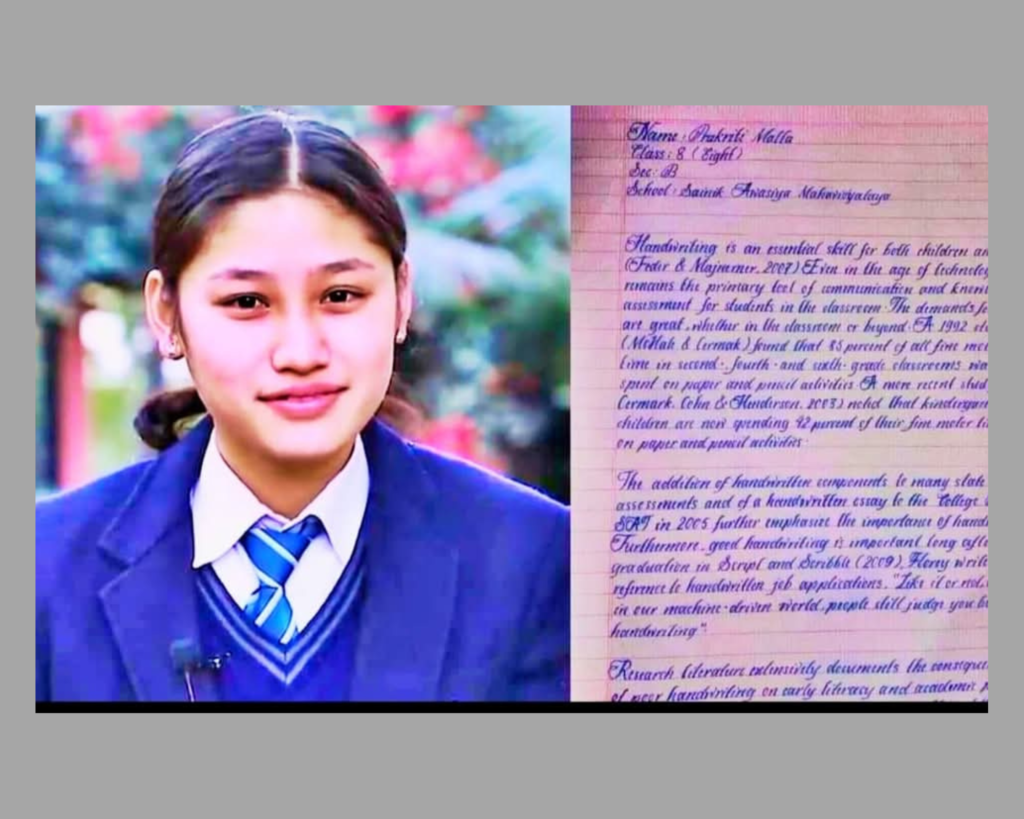 Name : Prakriti Malla
Class : 8 (Eight)
Sec : B
School : Sainik Awasiya Mahavidyalaya
Handwriting is an essential skill for both children an
(Feder & Majnemer, 2007) Even in the age of technology
remains the primary tool of communication and know
assessment for students in the classroom The demands fo
are great, whether in the classroom or beyond. A 1992 st
(McHale & Cermak) found that 85 percent of all fine mo
time in second-, fourth- and sixth- grade classrooms wa
spent on paper and pencil activities A more recent stud
Cermark, Cohn & Henderson, 2003) noted that kindergar
children are now spending 42 percent of their fine motor ti
on paper and pencil activities.
The addition of handwritten components to many stat
assessments and of a handwritten essay to the College
SAT in 2005 further emphasize the importance of hand
Furthermore, good handwriting is important long afte
graduation in Script and Scribble (2009), Florey write
reference to handwritten job applications, "Like it or not,
in our machine-driven world, people still judge you b
handwriting".
Research literature extensively documents the consequ
of poor handwriting on early literacy and academic p